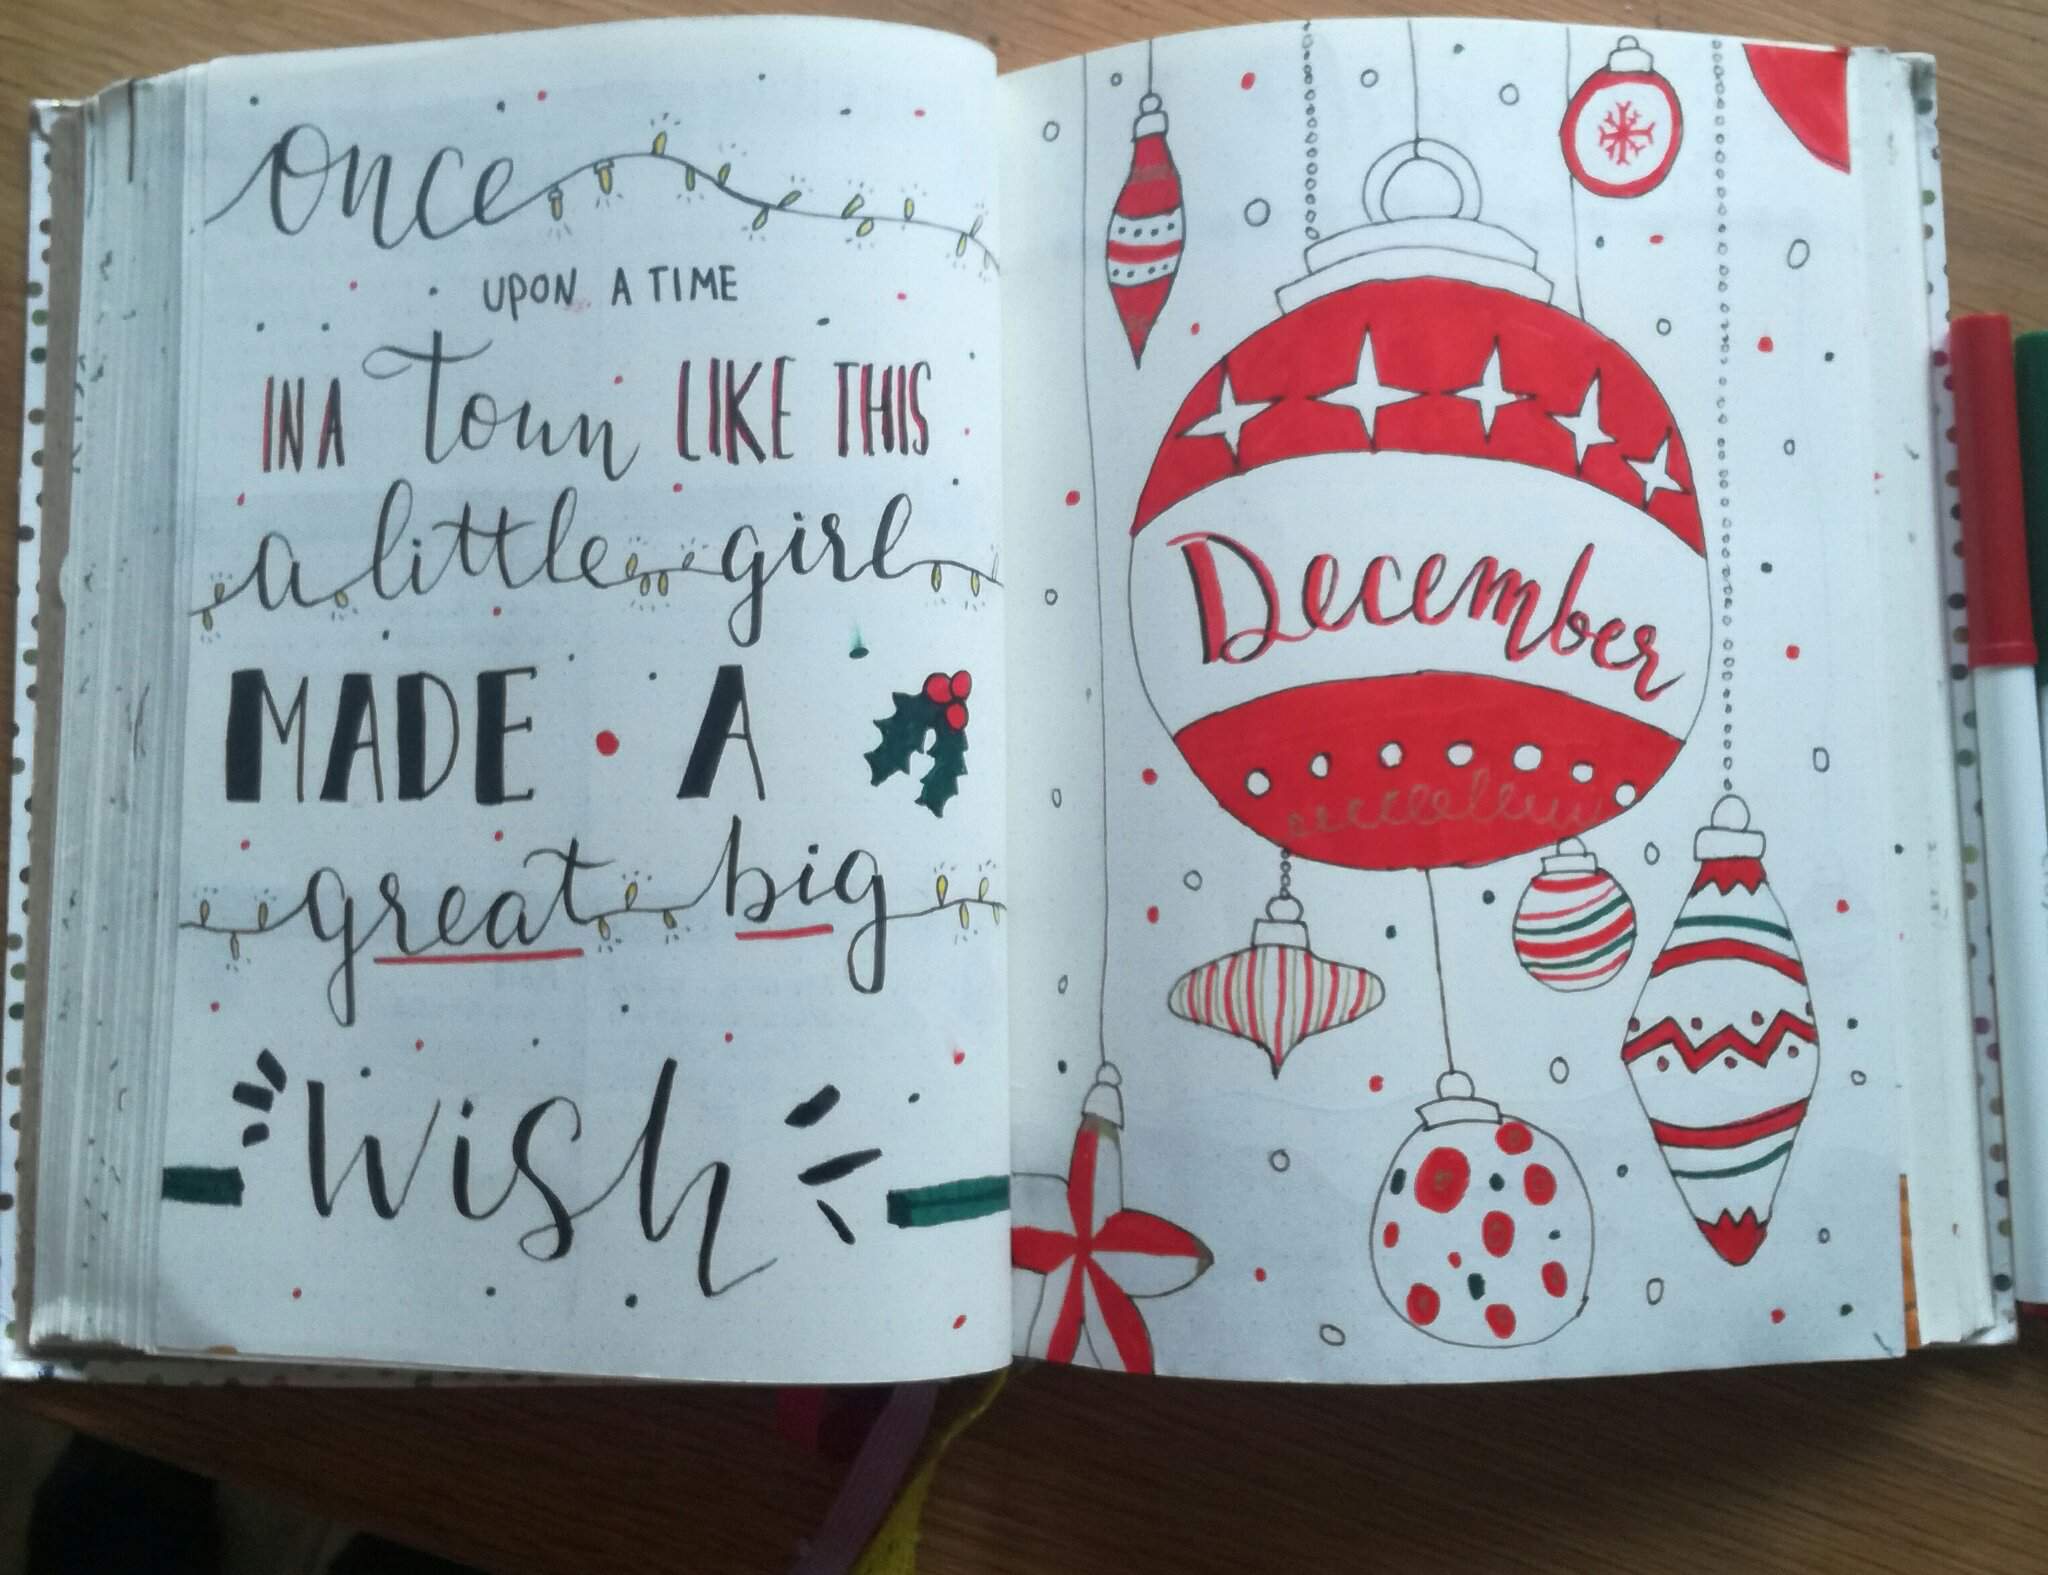 once
UPON A TIME
IN A Town LIKE THIS
a little girl
MADE A
great big
wish
December